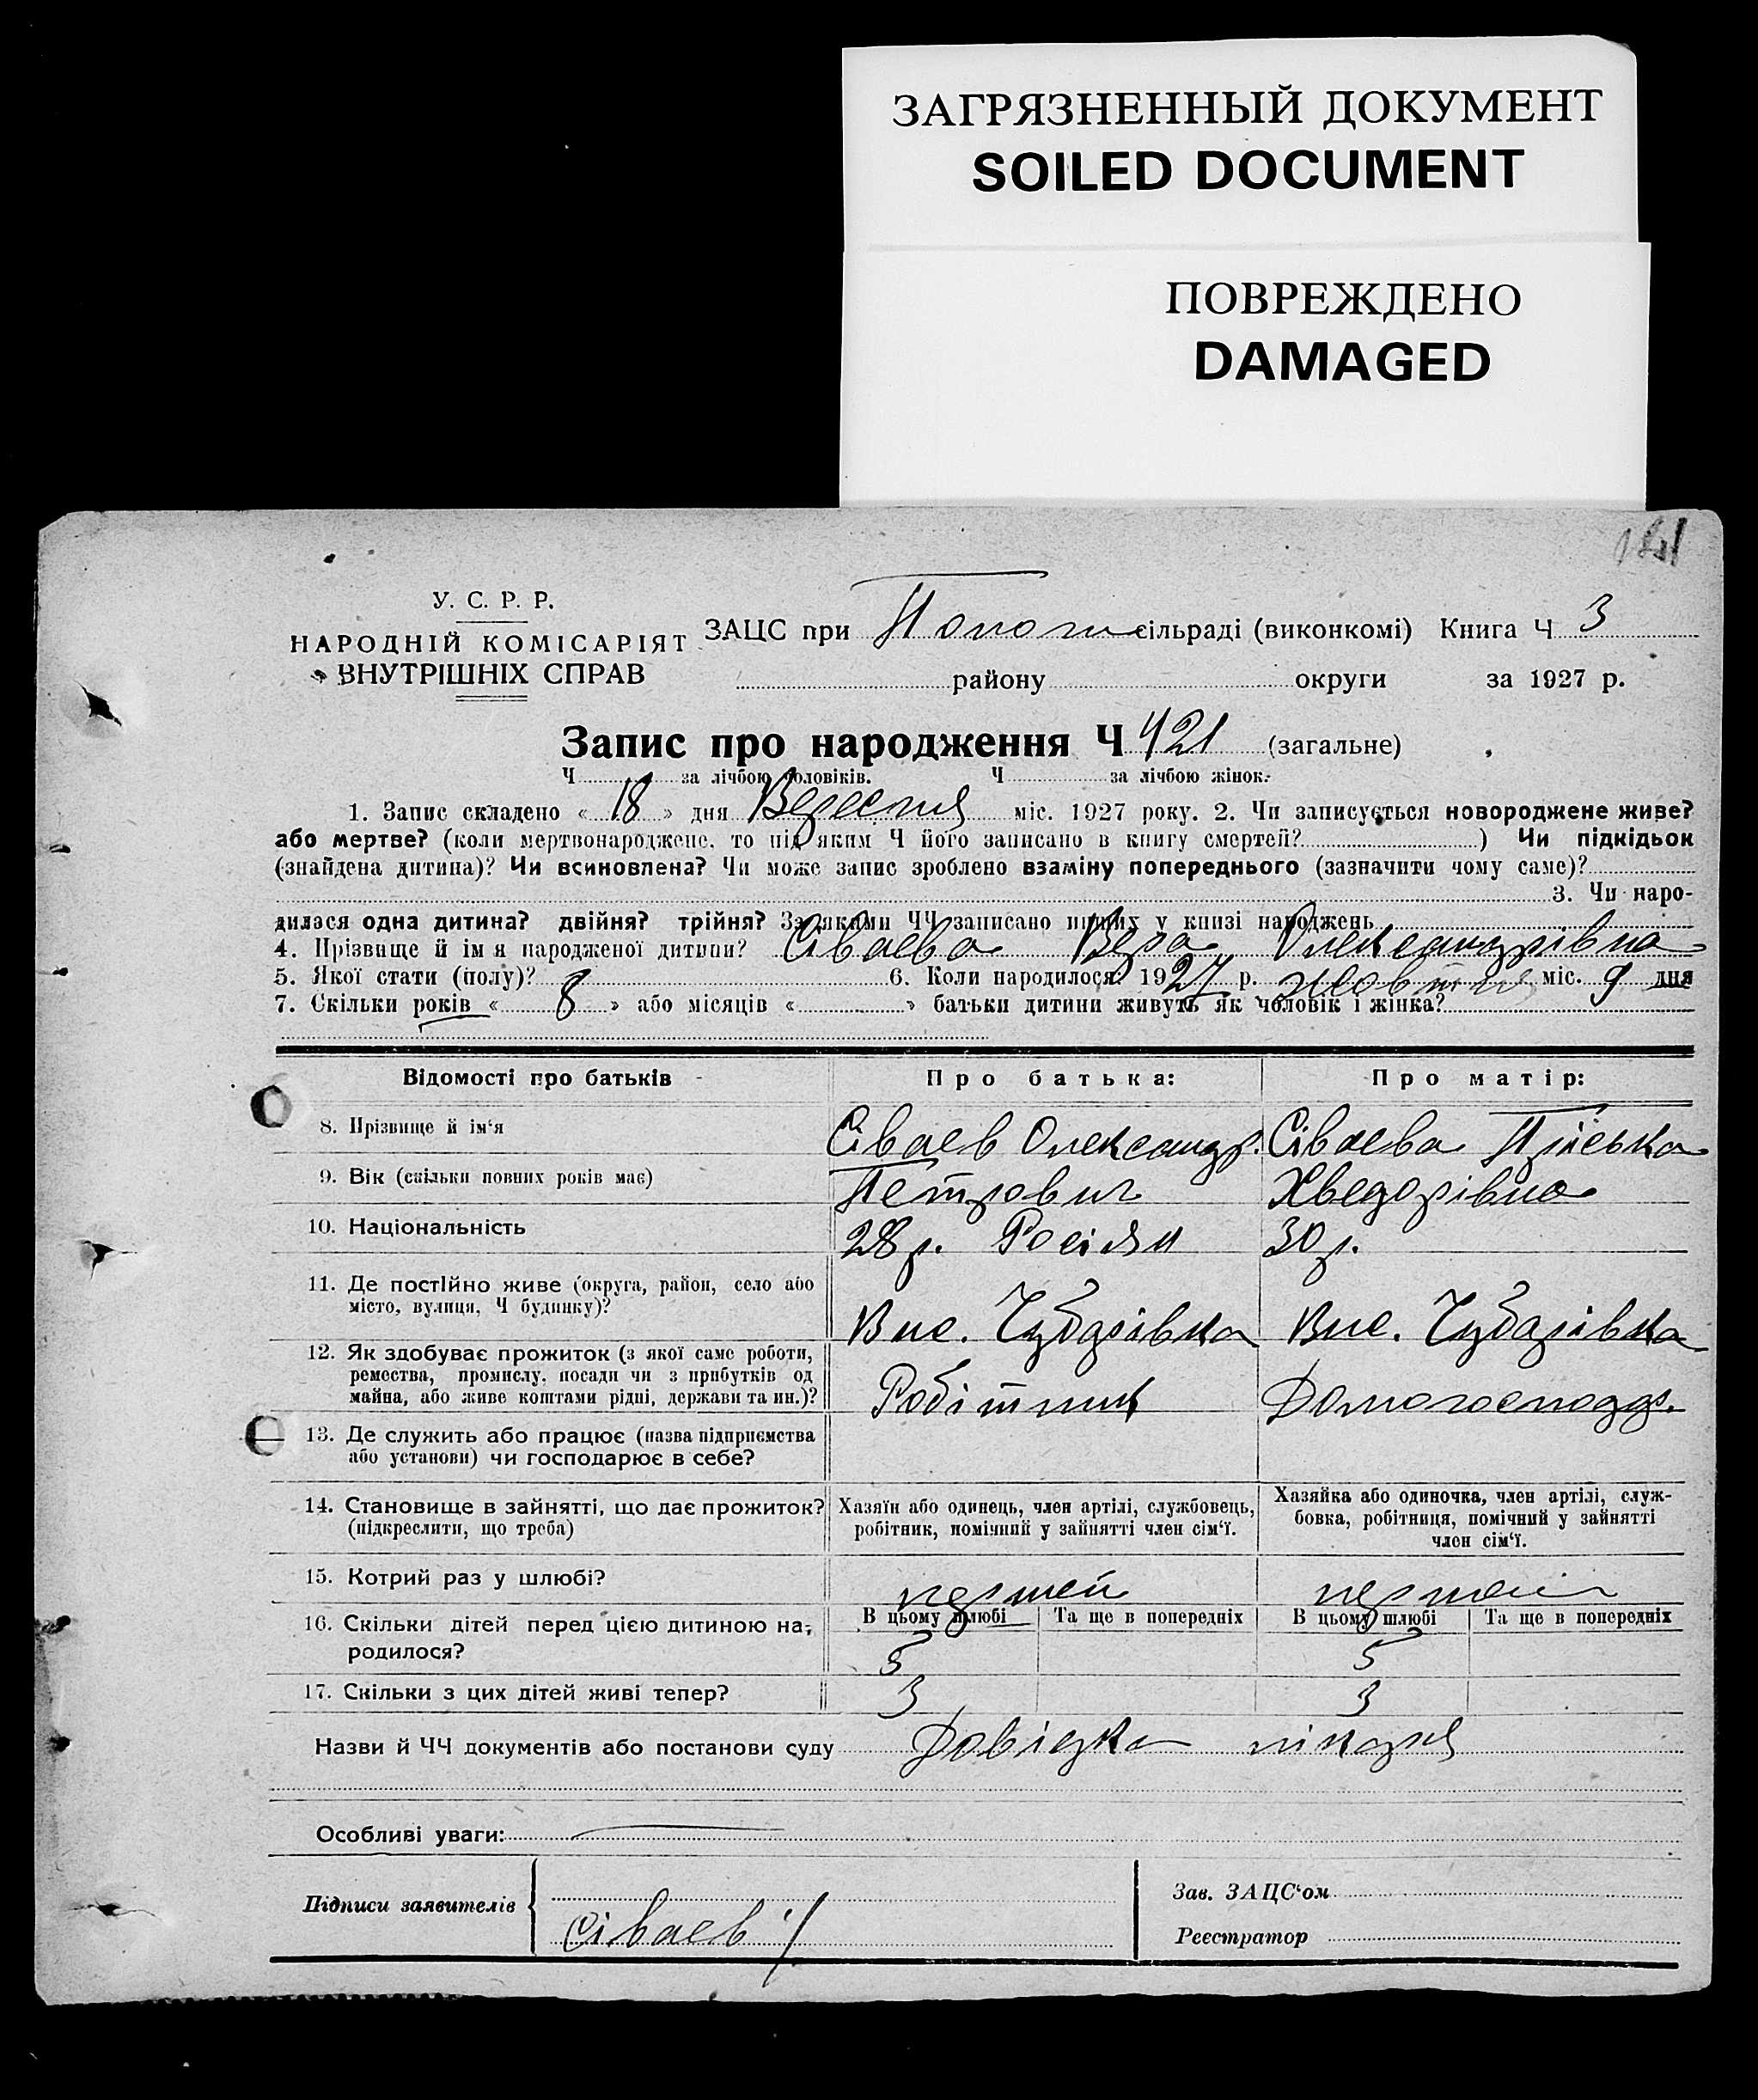 ЗАГРЯЗНЕННЫЙ ДОКУМЕНТ
SOILED DOCUMENT
ПОВРЕЖДЕНО
DAMAGED
У. С. Р. Р.
НАРОДНІЙ КОМІСАРІЯТ
ВНУТРІШНІХ СПРАВ
ЗАЦС при Пологи сільраді (виконкомі) Книга Ч 3
району округи за 1927 р.
Запис про народження Ч 421 (загальне)
Ч за лічбою чоловіків. Ч за лічбою жінок.
1. Запис складено « 18 » дня Вересня міс. 1927 року. 2. Чи записується новороджене живе?
або мертве? (коли мертвонароджене, то під яким Ч його записано в книгу смертей? ) Чи підкідьок
(знайдена дитина)? Чи всиновлена? Чи може запис зроблено взаміну попереднього (зазначити чому саме)?
3. Чи наро-
дилася одна дитина? двійня? трійня? За якими ЧЧ записано инших у книзі народжень
4. Прізвище й ім я народженої дитини? Сіваева Вера Олександрівна
5. Якої стати (полу)? 6. Коли народилося? 1927 р. жовтня міс. 9 дня
7. Скільки років « 8 » або місяців « » батьки дитини живуть як чоловік і жінка?
Відомості про батьків Про батька: Про матір:
8. Прізвище й ім'я Сіваев Олександр. Сіваева
9. Вік (скільки повних років має) Петрович Хведорівна
10. Національність 28 р. Росіян 30 р.
11. Де постійно живе (округа, район, село або
місто, вулиця, Ч будинку)? Вис. Чубарівка Вис. Чубарівка
12. Як здобуває прожиток (з якої саме роботи,
ремества, промислу, посади чи з прибутків од
майна, або живе коштами рідні, держави та ин.)? Робітник Домогосподар.
13. Де служить або працює (назва підприємства
або установи) чи господарює в себе?
14. Становище в зайнятті, що дає прожиток?
(підкреслити, що треба)
Хазяїн або одинець, член артілі, службовець,
робітник, помічний у зайнятті член сім'ї.
Хазяйка або одиночка, член артілі, служ-
бовка, робітниця, помічний у зайнятті
член сім'ї.
15. Котрий раз у шлюбі? першей
16. Скільки дітей перед цією дитиною на-
родилося?
В цьому шлюбі Та ще в попередніх В цьому шлюбі Та ще в попередніх
5 5
17. Скільки з цих дітей живі тепер? 3 3
Назви й ЧЧ документів або постанови суду Довідка лікаря
Особливі уваги:
Підписи заявителів Сіваев
Зав. ЗАЦС'ом
Реєстратор